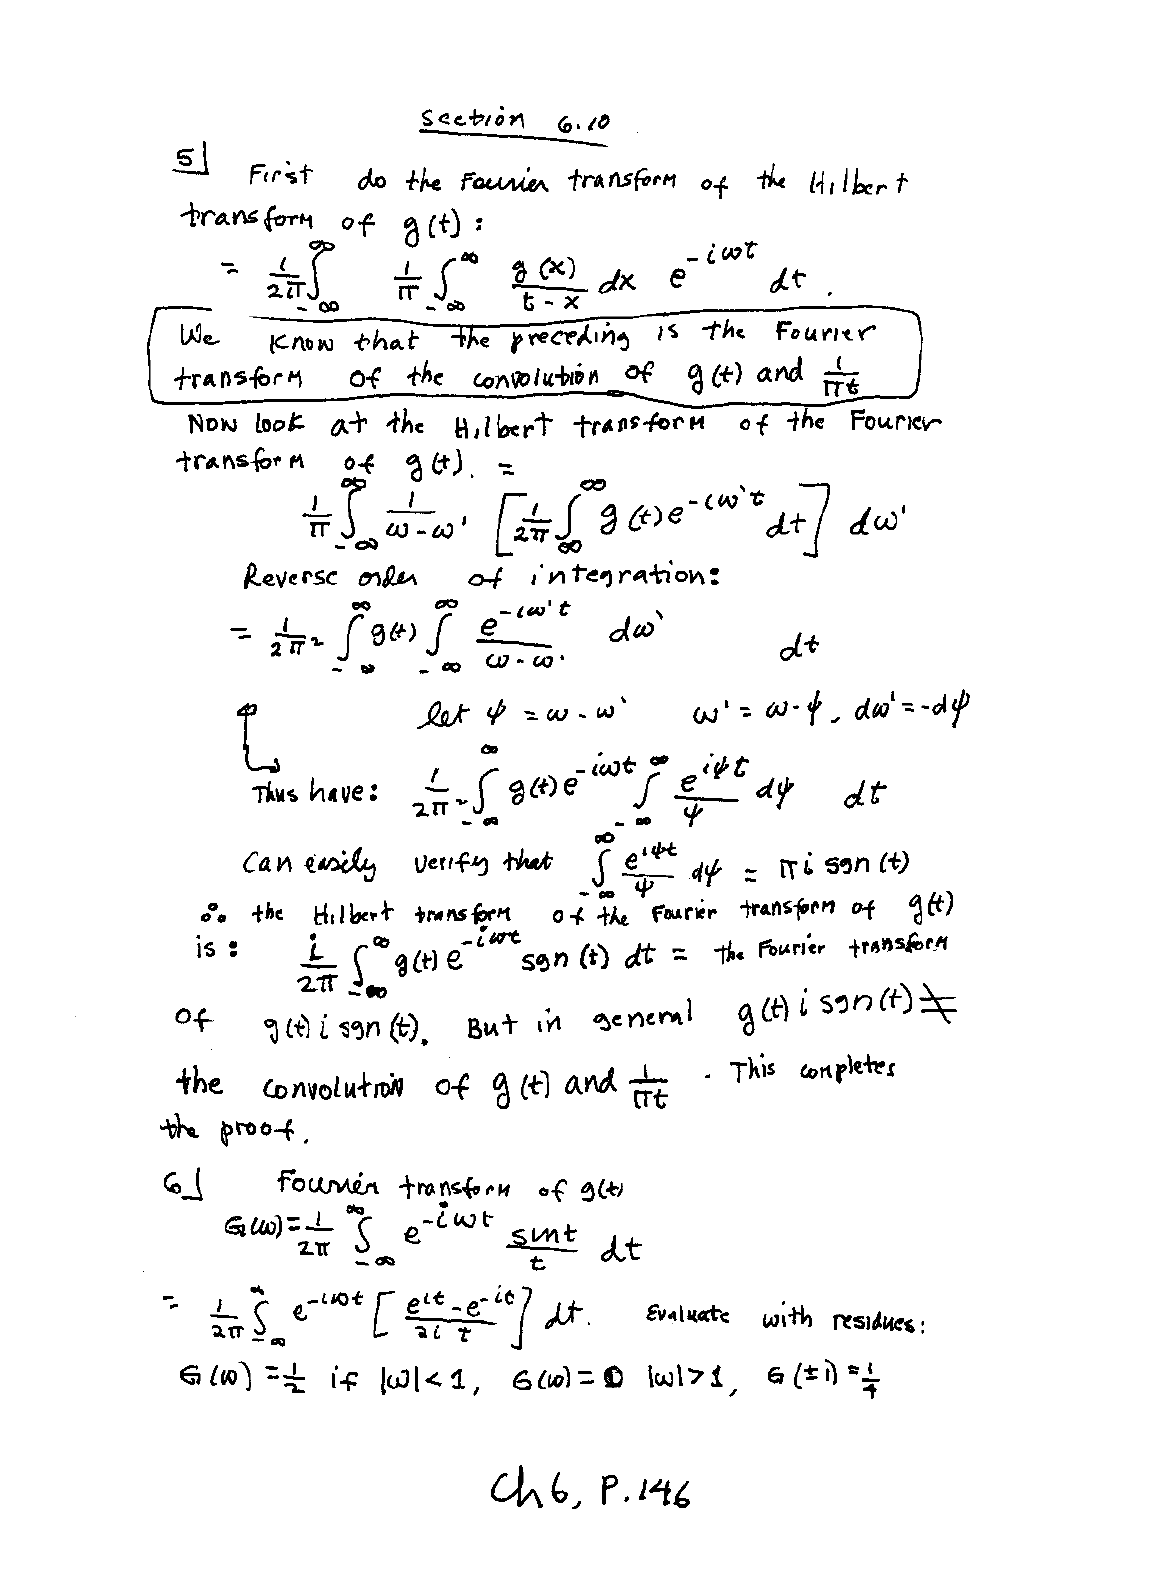 Section 6.10
5] First do the Fourier transform of the Hilbert
transform of g(t):
= 1/2π ∫_{-∞}^{∞} 1/π ∫_{-∞}^{∞} g(x)/(t-x) dx e^{-iωt} dt.
We know that the preceding is the Fourier
transform of the convolution of g(t) and 1/πt
Now look at the Hilbert transform of the Fourier
transform of g(t). =
1/π ∫_{-∞}^{∞} 1/(ω-ω') [1/2π ∫_{∞}^{∞} g(t)e^{-iω't} dt] dω'
Reverse order of integration:
= 1/2π² ∫_{-∞}^{∞} g(t) ∫_{-∞}^{∞} e^{-iω't}/(ω-ω') dω' dt
let ψ = ω-ω' ω' = ω-ψ, dω' = -dψ
Thus have: 1/2π² ∫_{-∞}^{∞} g(t)e^{-iωt} ∫_{-∞}^{∞} e^{iψt}/ψ dψ dt
Can easily verify that ∫_{-∞}^{∞} e^{iψt}/ψ dψ = πi sgn(t)
∴ the Hilbert transform of the Fourier transform of g(t)
is: i/2π ∫_{-∞}^{∞} g(t) e^{-iωt} sgn(t) dt = the Fourier transform
of g(t) i sgn(t). But in general g(t) i sgn(t) ≠
the convolution of g(t) and 1/πt. This completes
the proof.
6] Fourier transform of g(t)
G(ω) = 1/2π ∫_{-∞}^{∞} e^{-iωt} sint/t dt
= 1/2π ∫_{-∞}^{∞} e^{-iωt} [(e^{it}-e^{-it})/2i t] dt. Evaluate with residues:
G(ω) = 1/2 if |ω|<1, G(ω) = 0 |ω|>1, G(±1) = 1/4
Ch 6, P. 146